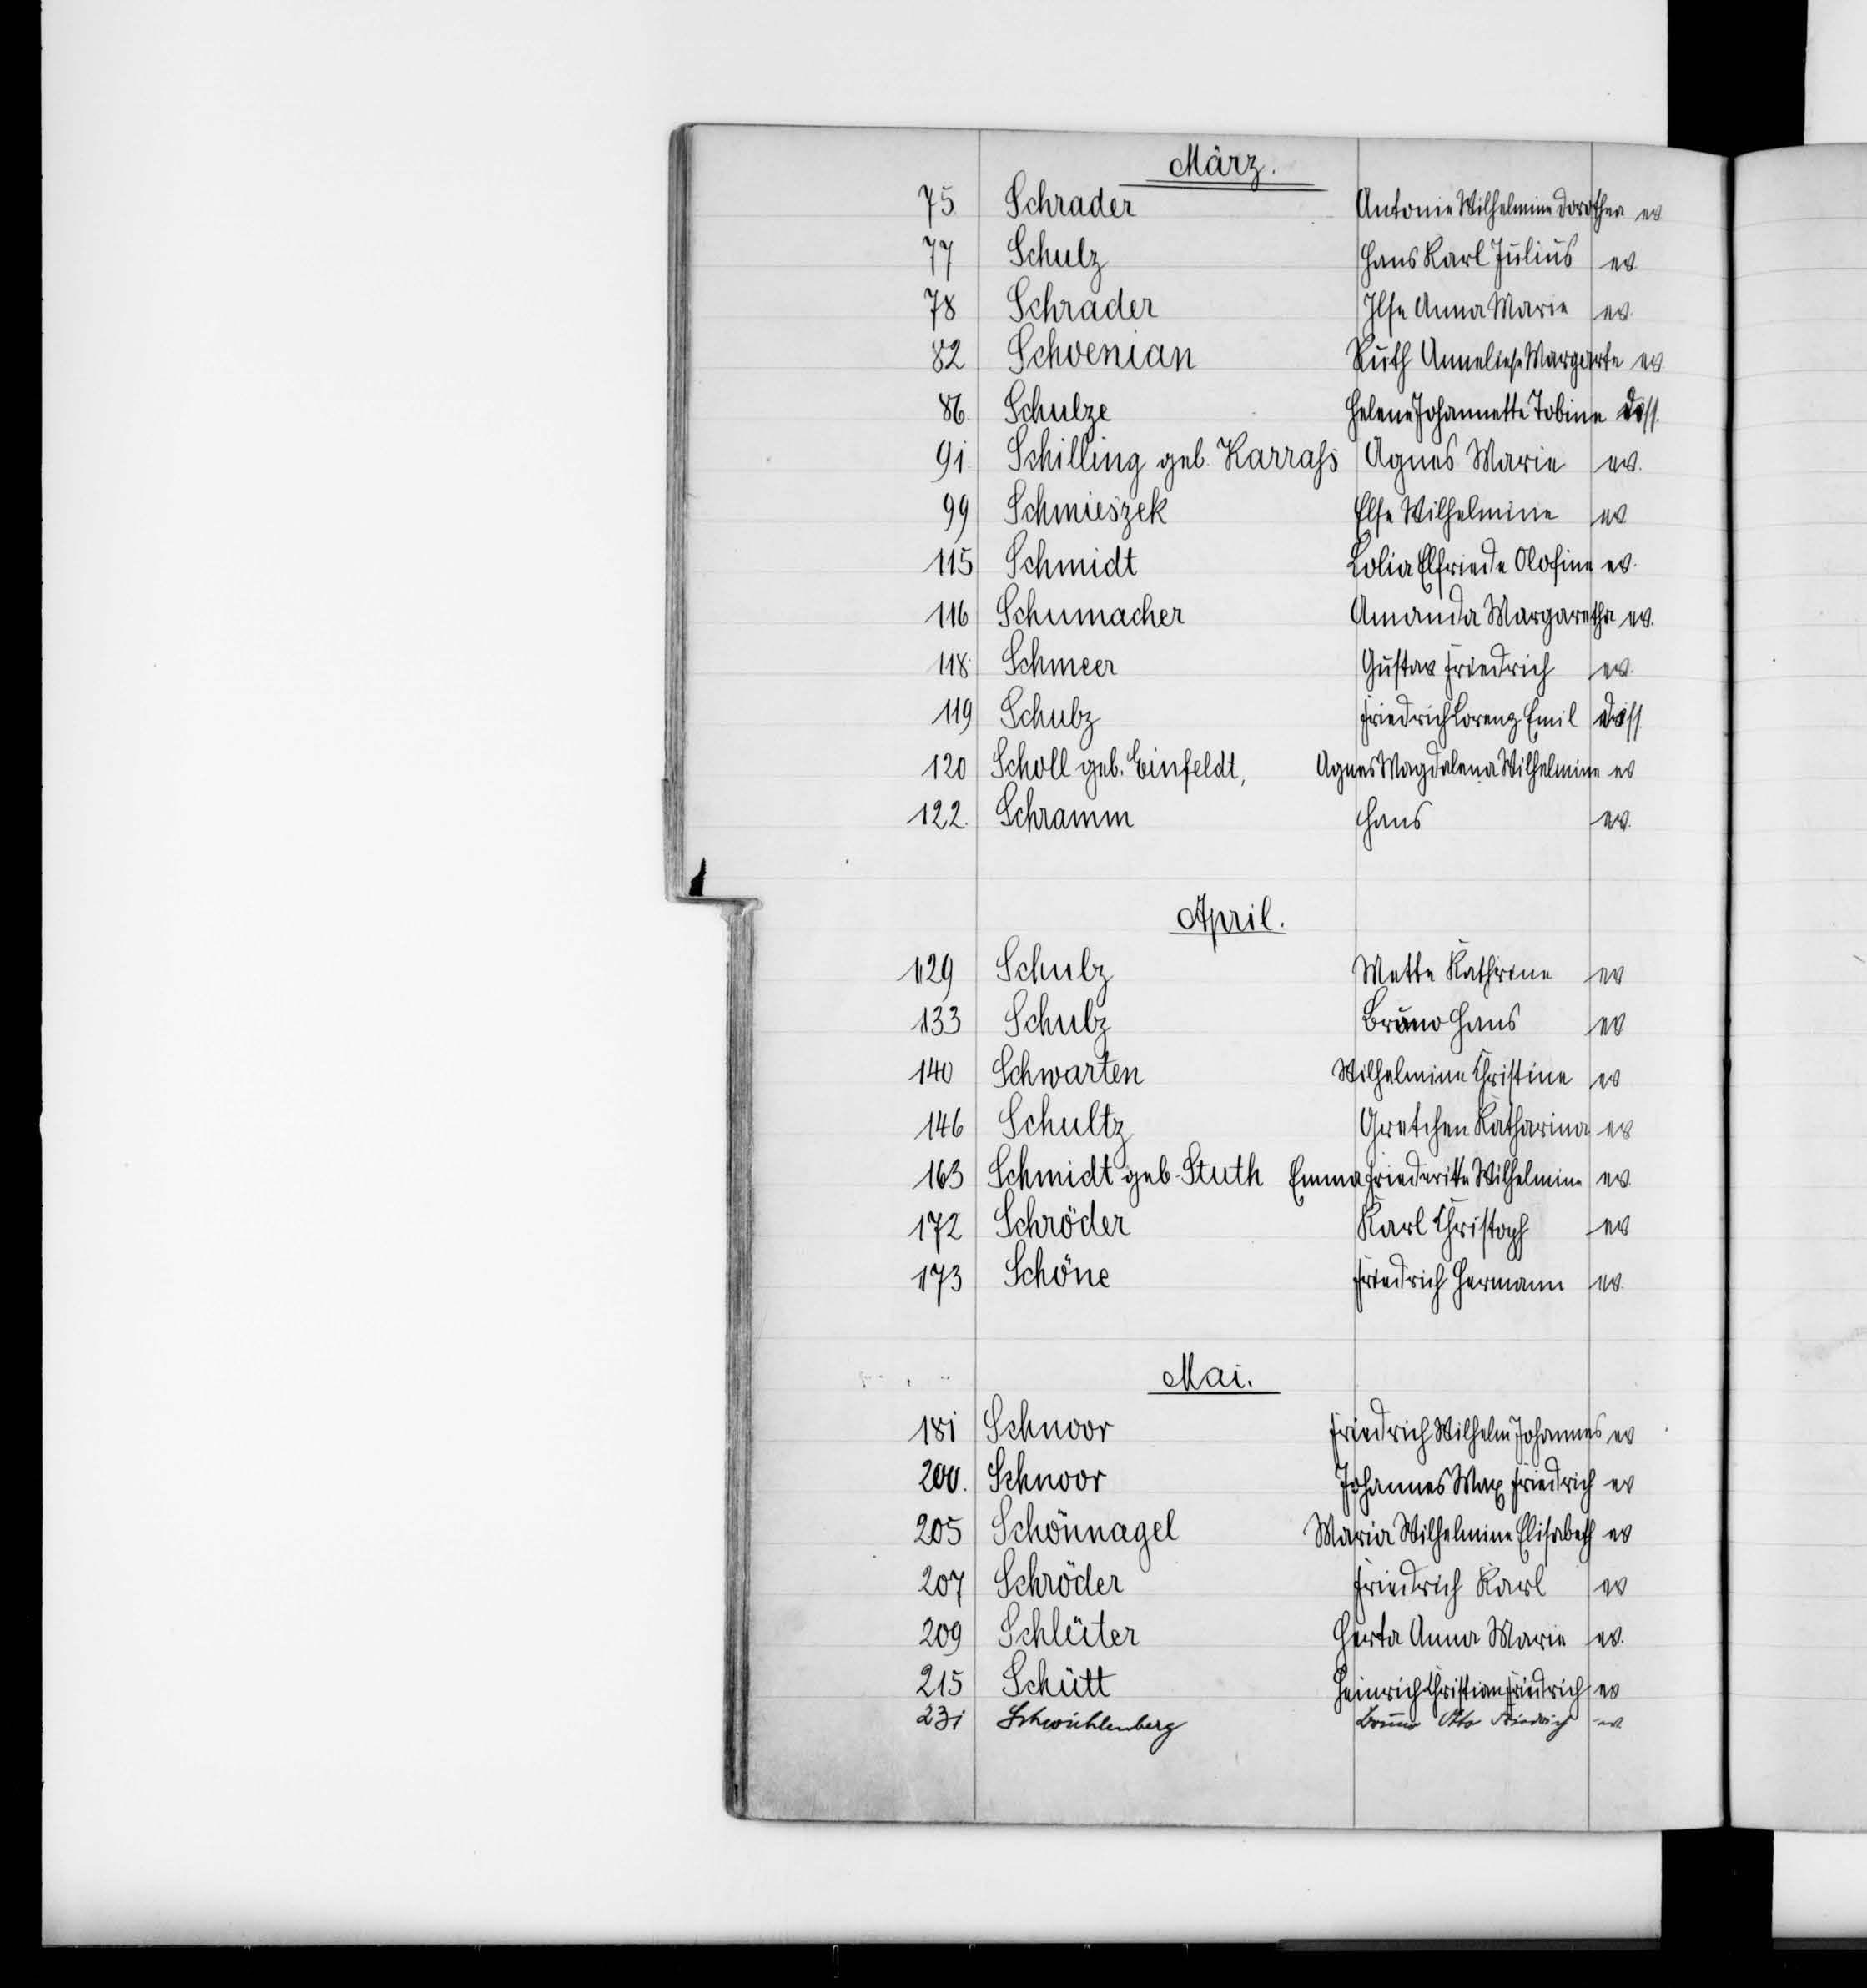 März.
75 Schrader Antonie Wilhelmine Dorothea ev
77 Schulz Hans Karl Julius ev.
78 Schrader Ilse Anna Marie ev.
82 Schoenian Ruth Anneliese Margarte ev
86. Schulze Helene Johannette Tobine diss.
91. Schilling geb. Karraß Agnes Marie ev.
99 Schmieszek Else Wilhelmine ev
115 Schmidt Lolia Elfriede Olofine ev.
116 Schumacher Amanda Margaretha ev.
118. Schmeer Gustav Friedrich ev.
119 Schulz Friedrich Lorenz Emil diss.
120 Scholl geb. Einfeldt, Agnes Magdalena Wilhelmine ev
122. Schramm Hans ev.
April.
129 Schulz Mette Kathrine ev
133 Schulz Bruno Hans ev
140 Schwarten Wilhelmine Christine ev
146 Schultz Gretchen Katharina ev
163 Schmidt geb. Stuth Emma Friederike Wilhelmine ev.
172 Schröder Karl Christoph ev
173 Schöne Friedrich Hermann ev.
Mai.
181 Schnoor Friedrich Wilhelm Johannes ev
200. Schnoor Johannes Max Friedrich ev
205 Schönnagel Maria Wilhelmine Elisabeth ev
207 Schröder Friedrich Karl ev
209 Schlüter Herta Anna Marie ev.
215 Schütt Heinrich Christian Friedrich ev
231 Schwichlenberg Bruno Otto Friedrich ev